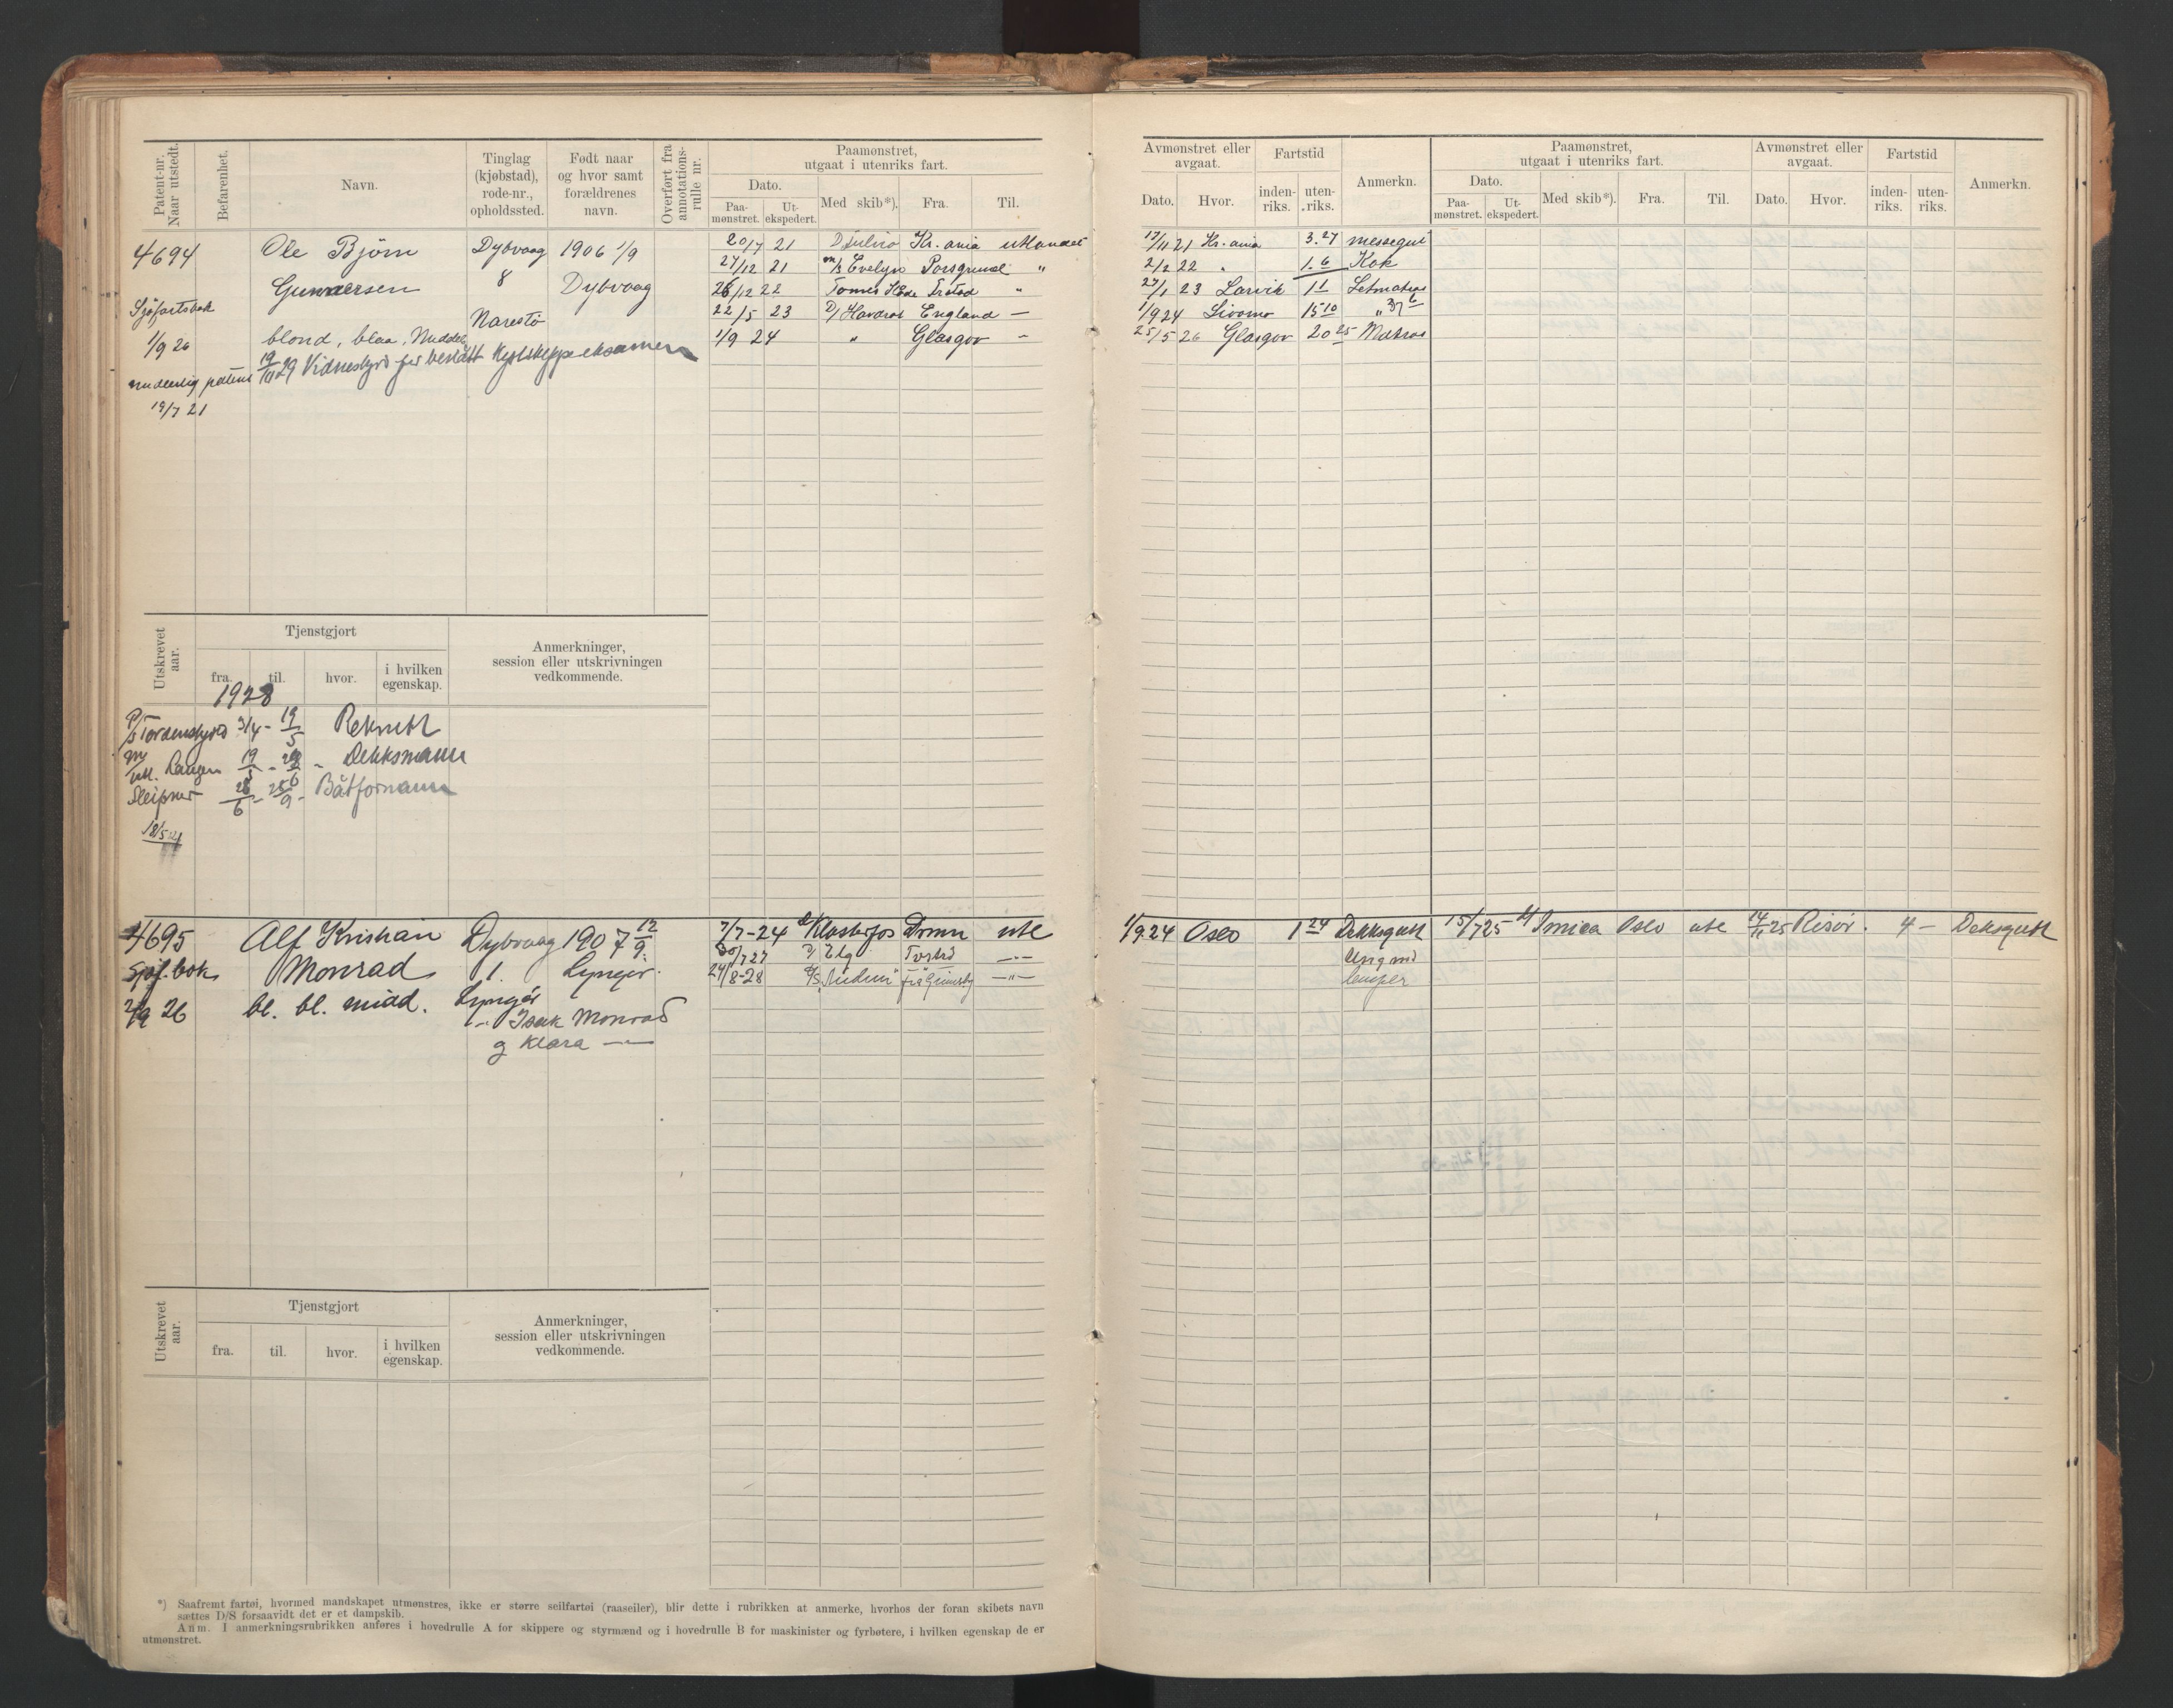 Patent-nr. Naar utstedt.
Befarenhet.
Navn.
Tinglag (kjøbstad), rode-nr., opholdssted.
Født naar og hvor samt forældrenes navn.
Overført fra annotations-rulle nr.
Paamønstret, utgaat i utenriks fart.
Dato.
Paa-mønstret.
Ut-ekspedert.
Med skib*).
Fra.
Til.
4694 Ole Bjørn Dybvaag 1906 1/9 20/7 21 Kr.ania utlandet
Gunnersen 8 Dybvaag 27/12 21 m/s Evelyn Porsgrund "
Sjøfartsbok 26/12 22 "
1/9 26 Narestö 22/5 23 D/ Havdrot England —
blond, blaa, Middels 1/9 24 " Glasgov -
19/11 29 Vidnesbyrd for bestått Kystskippereksamen
midlertidig patent
19/7 21
Utskrevet aar.
Tjenstgjort
fra.
til.
hvor.
i hvilken egenskap.
Anmerkninger, session eller utskrivningen vedkommende.
1928
P/S Tordenskjold 3/4 - 19/5 Rekrutt
Rauger 19/5 - Dekksmann
Sleipner 26/6 - 25/9 - Båtformann
18/5 21
4695 Alf Kristian Dybvaag 1907 12/9 7/7-24 Klosterfos Drmn ute
Sjøf.bok Monrad 1. Lyngør. 30/7 27 Elg —"—
26 bl. bl. midd. Lyngør 24/8-28 fra Grimsby —"—
Isak Monrad
g Klara —"—
Utskrevet aar.
Tjenstgjort
fra.
til.
hvor.
i hvilken egenskap.
Anmerkninger, session eller utskrivningen vedkommende.
*) Saafremt fartøi, hvormed mandskapet utmønstres, ikke er større seilfartøi (raaseiler), blir dette i rubrikken at anmerke, hvorhos der foran skibets navn
sættes D/S forsaavidt det er et dampskib.
Anm. I anmerkningsrubrikken anføres i hovedrulle A for skippere og styrmænd og i hovedrulle B for maskinister og fyrbøtere, i hvilken egenskap de er
utmønstret.
Avmønstret eller avgaat.
Dato.
Hvor.
Fartstid
inden-riks.
uten-riks.
Anmerkn.
Paamønstret, utgaat i utenriks fart.
Dato.
Paa-mønstret.
Ut-ekspedert.
Med skib*).
Fra.
Til.
Avmønstret eller avgaat.
Dato.
Hvor.
Fartstid
inden-riks.
uten-riks.
Anmerkn.
17/11 21 Kr.ania 3.27 messegut
2/2 22 " 1.6 Kok
27/1 23 Larvik 1 1 Letmatros
1/9 24 15 10 "
25/5 26 Glasgov 20 25 Matros
1/9.24 Oslo 1 24 Dekksgutt 15/7 25 Oslo ute 14/11 25 Risør. 4 — Deksgutt
Ungmd
lemper